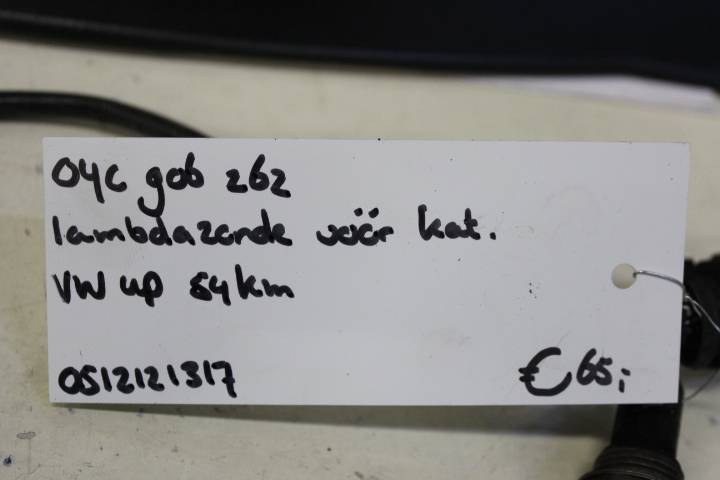 04C 906 262
lambdazonde vóór kat.
VW up 54km
0512121317 €65,-